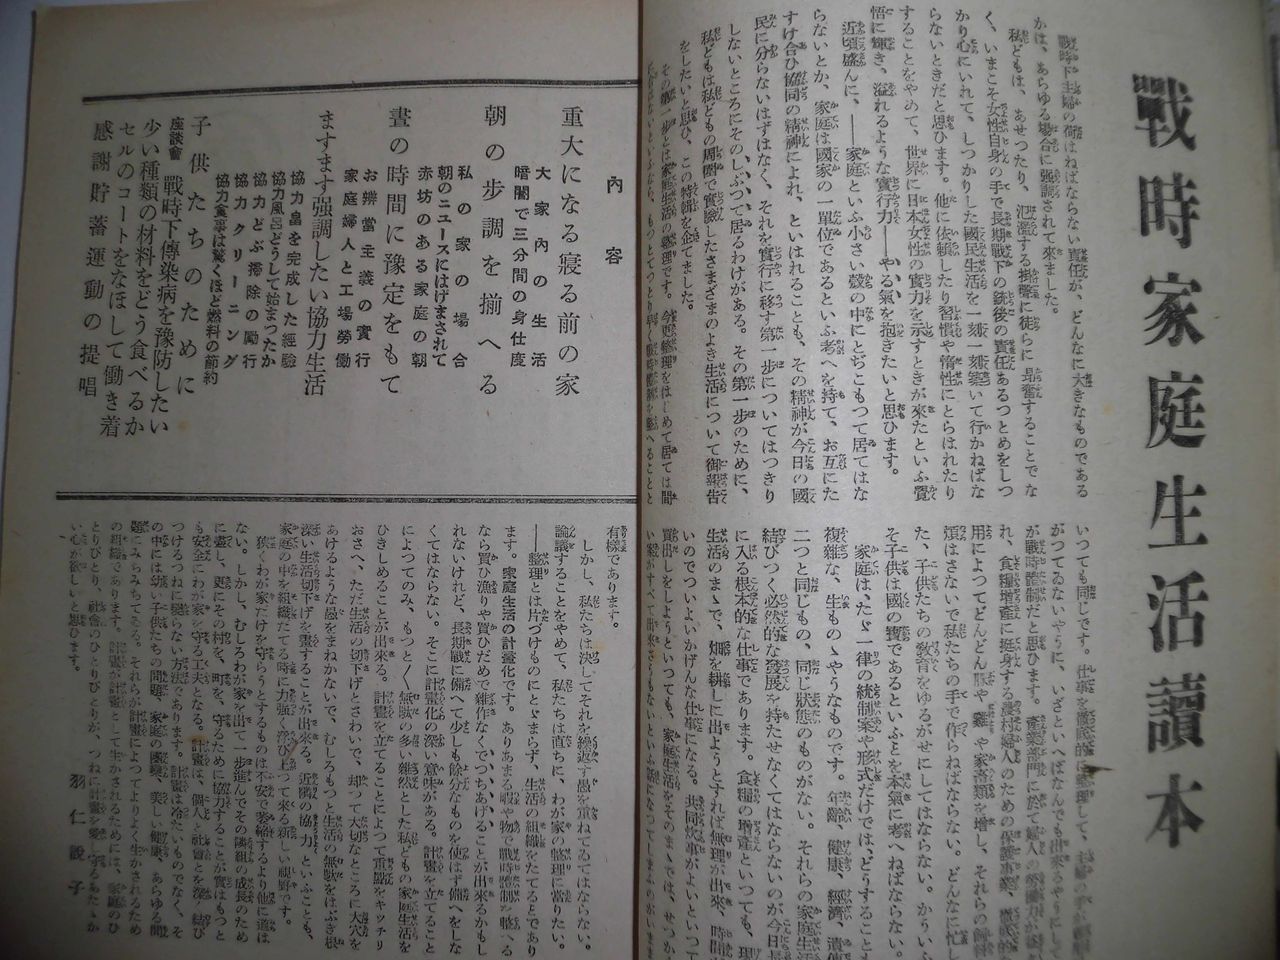 戰時家庭生活讀本
戰時下主婦の荷はねばならない責任が、どんなに大きなものである
かは、あらゆる場合に强調されて來ました。
私どもは、あせつたり、氾濫する掛聲に徒らに昻奮することでな
く、いまこそ女性自身の手で長期戰下の銃後の責任あるつとめをしつ
かり心にいれて、しつかりした國民生活を一刻一刻築いて行かねばな
らないときだと思ひます。他に依賴したり習慣や惰性にとらはれたり
することをやめて、世界に日本女性の實力を示すときが來たといふ覺
悟に輝き、溢れるような實行力——やる氣を抱きたいと思ひます。
近頃盛んに、——家庭といふ小さい殼の中にとぢこもつて居てはな
らないとか、家庭は國家の一單位であるといふ考へを持て、お互にた
すけ合ひ協同の精神によれ、といはれることも、その精神が今日の國
民に分らないはずはなく、それを實行に移す第一步についてはつきり
しないところにそのしぶつて居るわけがある。その第一步のために、
私どもは私どもの周圍で實驗したさまざまのよき生活について御報告
をしたいと思ひ、この特輯を企てました。
その第一步とは家庭生活の整理です。今更整理をはじめて居ては間
いつても同じです。仕事を徹底的に整理して、
がつてゐないやうに、いざといへばなんでも出來るやうにして
が戰時體制だと思ひます。産業部門に於て婦人の勞働力が
れ、食糧增産に挺身する農村婦人のための保護事業、徹底的な
用によつてどんどん豚や、雞や家畜類を增し、それらの飼料
煩はさないで私たちの手で作らねばならない。どんなに忙し
た、子供たちの敎育をゆるがせにしてはならない。かういふ
そ子供は國の寶であるといふことを本氣に考へねばならない。
家庭は、たゞ一律の統制案や形式だけでは、どうすること
複雜な、生ものゝやうなものです。年齡、健康、經濟、遺傳
二つと同じもの、同じ狀態のものがない。それらの家庭生活
結びつく必然的な發展を持たせなくてはならないのが今日
に入る根本的な仕事であります。食糧の增産といつても、現
生活のまゝで、畑を耕しに出ようとすれば無理が出來、時間
いのでついよいかげんな仕事になる。共同炊事がよいといつて
買出しをしようといつても、家庭生活をそのまゝでは、せつか
內容
重大になる寢る前の家
大家內の生活
暗闇で三分間の身仕度
朝の步調を揃へる
私の家の場合
朝のニユースにはげまされて
赤坊のある家庭の朝
晝の時間に豫定をもて
お辨當主義の實行
家庭婦人と工場勞働
ますます强調したい協力生活
協力畠を完成した經驗
協力風呂どうして始まつたか
協力どぶ掃除の勵行
協力クリーニング
協力食事は驚くほど燃料の節約
子供たちのために
座談會 戰時下傳染病を豫防したい
少い種類の材料をどう食べるか
セルのコートをなほして働き着
感謝貯蓄運動の提唱
有樣であります。
しかし、私たちは決してそれを繰返す愚を重ねてゐてはならない。
論議することをやめて、私たちは直ちに、わが家の整理に當りたい。
——整理とは片づけものにとゞまらず、生活の組織をたてるとであり
ます。家庭生活の計量化です。ありあまる暇や物で戰時體制を整へる
なら買ひ漁り買ひだめで雜作なくでつちあげることが出來るかもし
れないけれど、長期戰に備へて少しも餘分なものを使はず備へをしな
くてはならない。そこに計畫化の深い意味がある。計畫を立てること
によつてのみ、もつとく無駄の多い雜然とした私どもの家庭生活を
ひきしめることが出來る。計畫を立てることによつて重點をキツチリ
おさへ、たゞ生活の切下げとさわいで、却つて大切なところに大穴を
あけるような愚をまねかないで、むしろもつと生活の無駄をはぶき根
深い生活切下げを畫することが出來る。近隣の協力、といふことも、
家庭の中を組織だてる時に力强く浮び上つて來る新しい視野です。
狹くわが家だけを守らうとするものは不安で萎縮するより他に道は
ない。しかし、むしろわが家を出て一步進んでその隣組の成長のため
に盡し、更にその村を、町を、守るために協力することが實はもつと
も安全にわが家を守る工夫となる。計畫は、個人と社會とを深く結び
つけるつねに變らない方法であります。計畫は冷たいものでなく、そ
の中には幼い子供たちの問題、家庭の團欒、美しい健康、あらゆる問
題にみちみちてゐる。それらが計畫によつてよりよく生かされるため
の組織であります。計畫が計畫として生かされるためには、家庭のひ
とりびとり、社會のひとりびとりが、つねに計畫を愛し守るあたゝか
い心が欲しいと思ひます。
羽仁說子